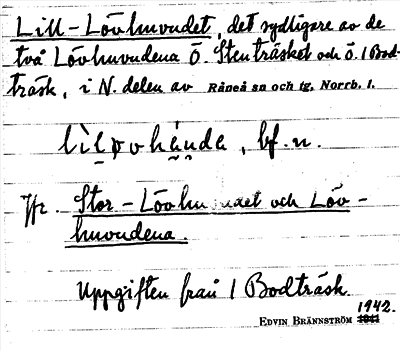 Lill-Lövhuvudet, det sydligare av de
två Lövhuvudena Ö. Stenträsket och Ö. 1 Bod-
träsk, i N. delen av Råneå sn och tg. Norrb. l.
bf. n.
Jfr. Stor-Lövhuvudet och Löv-
huvudena.
Uppgiften från 1 Bodträsk.
1942.
EDVIN BRÄNNSTRÖM 1941